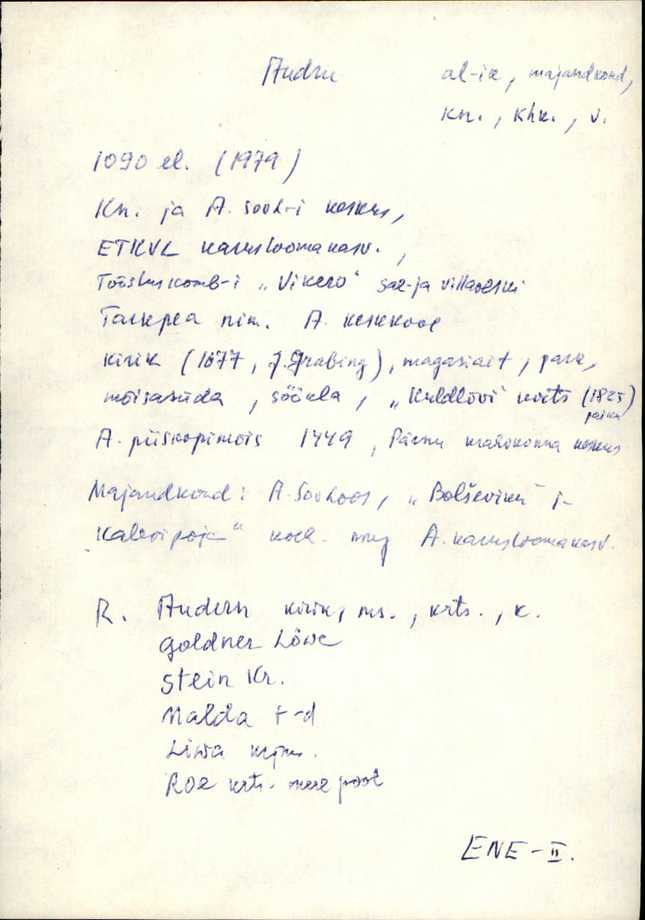 Audru al-ik, majandkond,
kn., khk., v.
1090 el. (1979)
Kn. ja A. sovh-i keskus,
ETKVL karusloomakasv.,
Tööstuskomb-i „Vikero" sae-ja villaveski
Taukpea nim. A. keskkool
kirik (1677, J. Grabing), magasiait, park,
mõisasüda, söökla, „Kuldlõvi" kõrts (1825
paiku)
A. piiskopimõis 1449, Pärnu
keskus
Majandkond: A. Sovhoos, „Bolševiku" j-
Kalevipoja" kolh. ning A. karusloomakasv.
R. Audern kirik, ms., krts., k.
Goldner Löwe
Stein Kr.
Malda t-d
Liwa
Roe krts. mere pool
ENE-II.